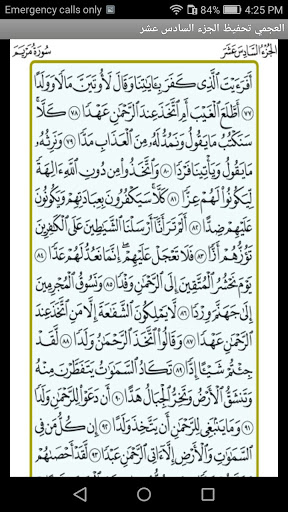 Emergency calls only
4:25 PM
العجمي تحفيظ الجزء السادس عشر
الجزء السادس عشر
سورة مريم
أَفَرَءَيْتَ ٱلَّذِى كَفَرَ بِـَٔايَـٰتِنَا وَقَالَ لَأُوتَيَنَّ مَالًا وَوَلَدًا
٧٧ أَطَّلَعَ ٱلْغَيْبَ أَمِ ٱتَّخَذَ عِندَ ٱلرَّحْمَـٰنِ عَهْدًا ٧٨ كَلَّا ۚ
سَنَكْتُبُ مَا يَقُولُ وَنَمُدُّ لَهُۥ مِنَ ٱلْعَذَابِ مَدًّا ٧٩ وَنَرِثُهُۥ
مَا يَقُولُ وَيَأْتِينَا فَرْدًا ٨٠ وَٱتَّخَذُوا۟ مِن دُونِ ٱللَّهِ ءَالِهَةً
لِّيَكُونُوا۟ لَهُمْ عِزًّا ٨١ كَلَّا ۚ سَيَكْفُرُونَ بِعِبَادَتِهِمْ وَيَكُونُونَ
عَلَيْهِمْ ضِدًّا ٨٢ أَلَمْ تَرَ أَنَّآ أَرْسَلْنَا ٱلشَّيَـٰطِينَ عَلَى ٱلْكَـٰفِرِينَ
تَؤُزُّهُمْ أَزًّا ٨٣ فَلَا تَعْجَلْ عَلَيْهِمْ ۖ إِنَّمَا نَعُدُّ لَهُمْ عَدًّا ٨٤
يَوْمَ نَحْشُرُ ٱلْمُتَّقِينَ إِلَى ٱلرَّحْمَـٰنِ وَفْدًا ٨٥ وَنَسُوقُ ٱلْمُجْرِمِينَ
إِلَىٰ جَهَنَّمَ وِرْدًا ٨٦ لَّا يَمْلِكُونَ ٱلشَّفَـٰعَةَ إِلَّا مَنِ ٱتَّخَذَ عِندَ
ٱلرَّحْمَـٰنِ عَهْدًا ٨٧ وَقَالُوا۟ ٱتَّخَذَ ٱلرَّحْمَـٰنُ وَلَدًا ٨٨ لَّقَدْ
جِئْتُمْ شَيْـًٔا إِدًّا ٨٩ تَكَادُ ٱلسَّمَـٰوَٰتُ يَتَفَطَّرْنَ مِنْهُ
وَتَنشَقُّ ٱلْأَرْضُ وَتَخِرُّ ٱلْجِبَالُ هَدًّا ٩٠ أَن دَعَوْا۟ لِلرَّحْمَـٰنِ وَلَدًا
٩١ وَمَا يَنۢبَغِى لِلرَّحْمَـٰنِ أَن يَتَّخِذَ وَلَدًا ٩٢ إِن كُلُّ مَن فِى
ٱلسَّمَـٰوَٰتِ وَٱلْأَرْضِ إِلَّآ ءَاتِى ٱلرَّحْمَـٰنِ عَبْدًا ٩٣ لَّقَدْ أَحْصَىٰهُمْ